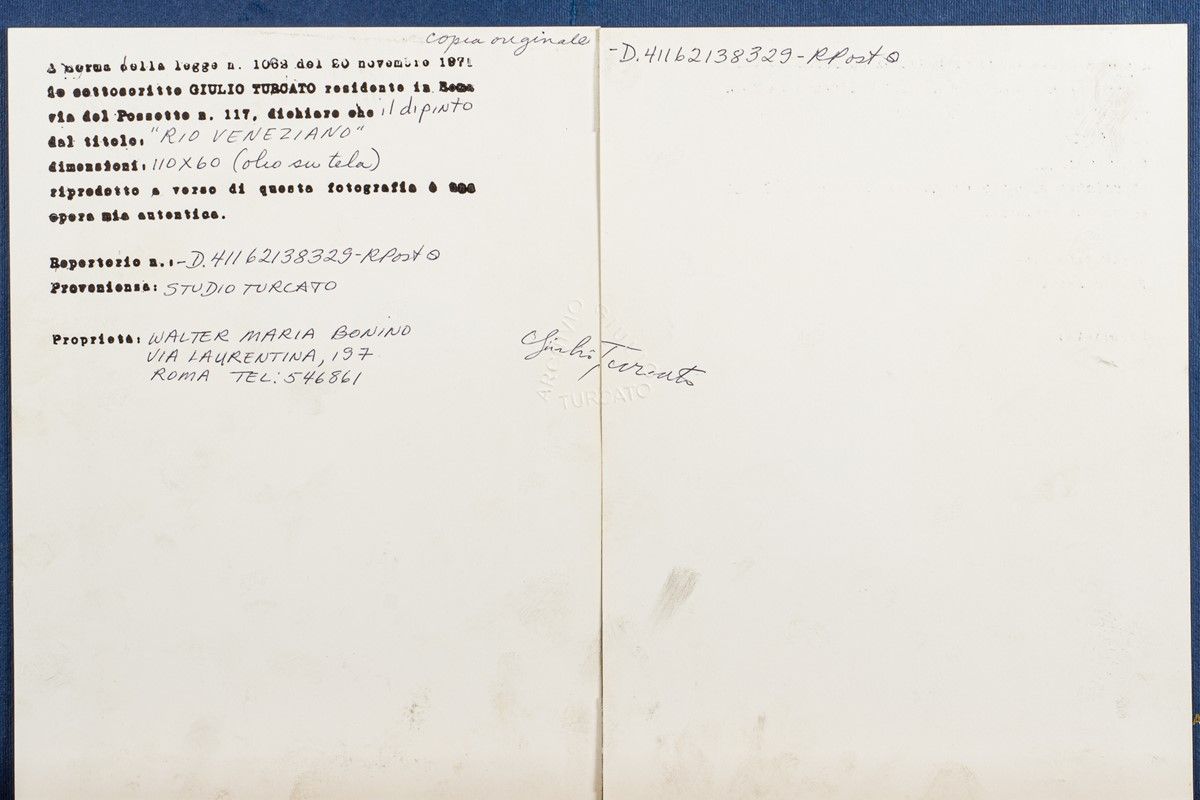 copia originale
A norma della legge n. 1062 del 20 novembre 1971
io sottoscritto GIULIO TURCATO residente in Roma
via del Pozzetto n. 117, dichiaro che il dipinto
dal titolo: "RIO VENEZIANO"
dimensioni: 110X60 (olio su tela)
riprodotto a verso di questa fotografia è una
opera mia autentica.
Repertorio n.: -D.41162138329-RPost
Provenienza: STUDIO TURCATO
Proprietà: WALTER MARIA BONINO
VIA LAURENTINA, 197
ROMA TEL: 546861
-D.41162138329-RPost
Giulio Turcato
ARCHIVIO
TURCATO